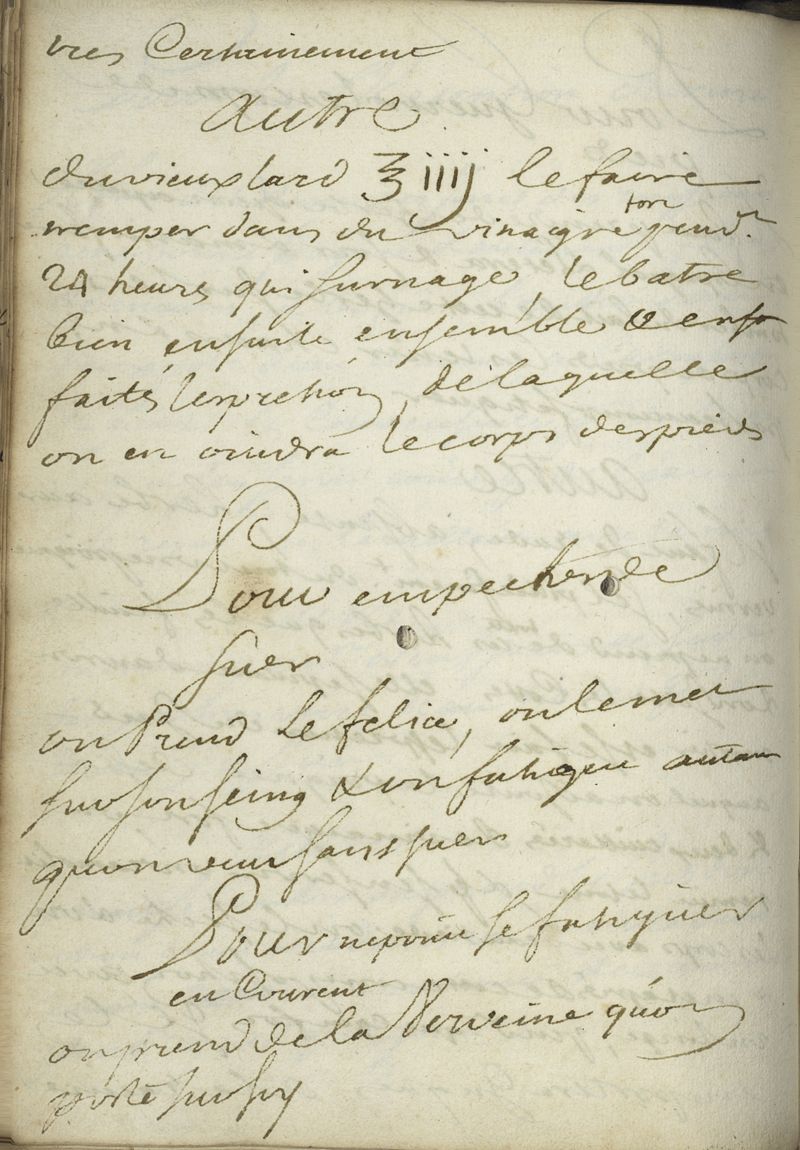 vres Certainement
Autre
du vieux lard ℥ iiij le faire
tremper dans du vinaigre fort pend.t
24 heures qui surnage, le batre
bien ensuite ensemble
faités l'expretion, de laquelle
on en oindra le corps des pieds
Pour empecher de
suer
on Prend le felice, on le met
sur son seing & on fatigue autan
qu'on veut sans suer
Pour ne point se fatiguer
en Courent
on prend de la Verveine qu'on
porte sur soy